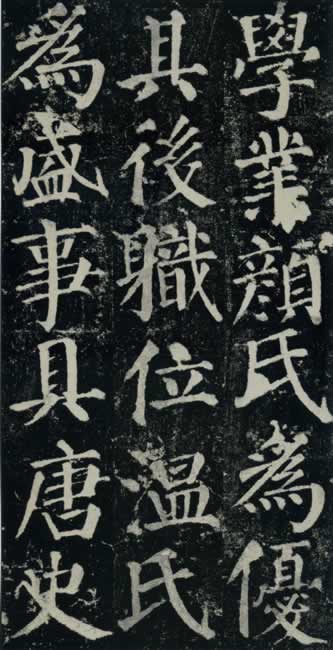 學業顏氏為優
其後職位温氏
為盛事具唐史